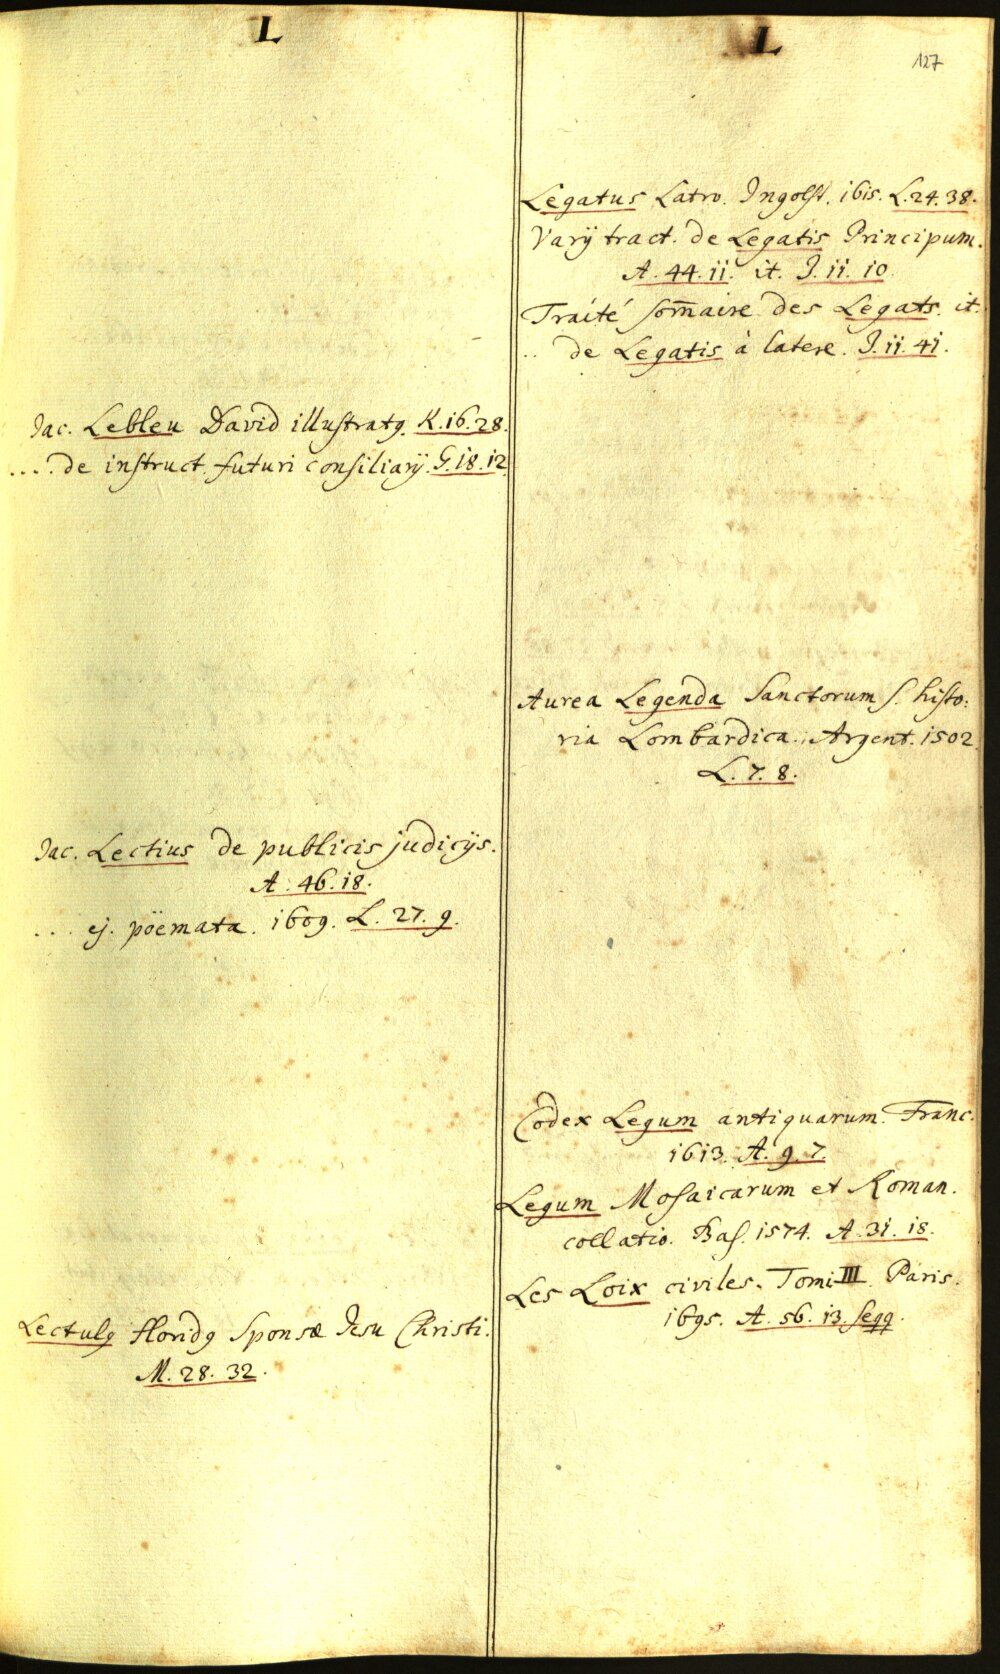 L
Jac. Lebleu David illustratꝯ. K. 16. 28.
.... de instruct. futuri consiliarÿ. G. 18. 12
Jac. Lectius de publicis judicÿs.
A. 46. 18.
... ej. pöemata. 1609. L. 27. 9.
Lectulꝯ floridꝯ Sponsæ Jesu Christi.
M. 28. 32.
L
127
Legatus Latro. Ingolst. 1615. L. 24. 38.
Varÿ tract. de Legatis Principum.
A. 44. 11. it. J. 11. 10.
Traité som̄aire des Legats. it.
.. de Legatis à latere. J. 11. 41.
Aurea Legenda Sanctorum s. histo:
ria Lombardica. Argent. 1502
L. 7. 8.
Codex Legum antiquarum. Franc.
1613. A. 9. 7.
Legum Mosaicarum et Roman.
collatio. Bas. 1574. A. 31. 18.
Les Loix civiles. Tomi III. Paris.
1695. A. 56. 13. seqq.